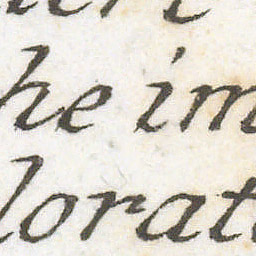 he im
lorat